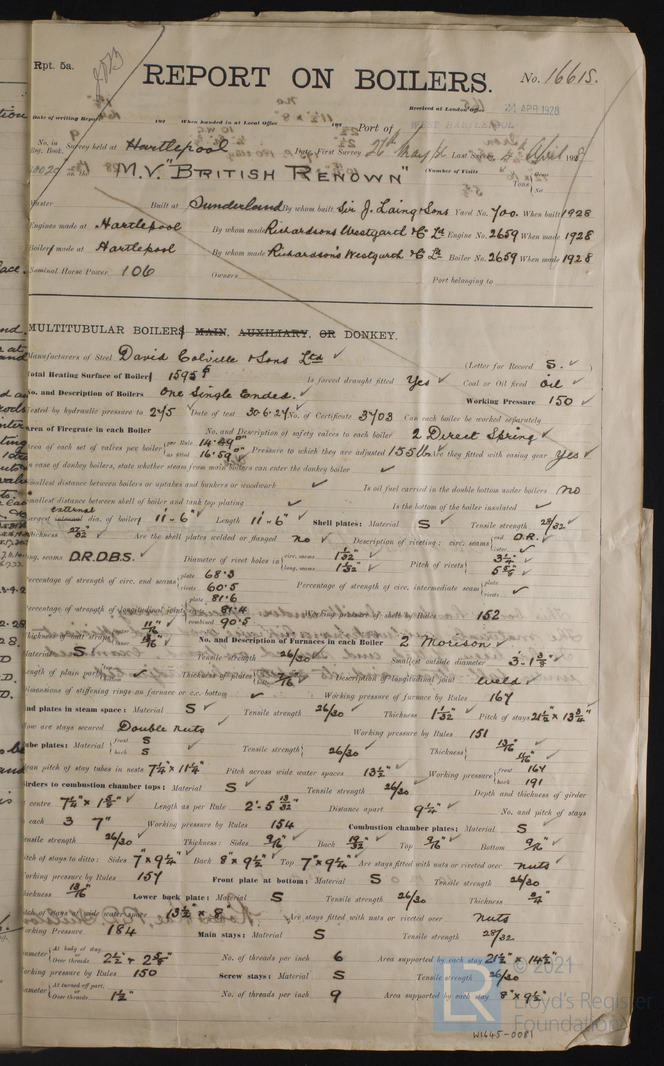 Rpt. 5a.
REPORT ON BOILERS.
No. 16615.
Received at London Office 21 APR 1928
Date of writing Report 192 When handed in at Local Office 192 Port of WEST HARTLEPOOL
No. in Survey held at Hartlepool Date, First Survey Last Survey April 1928
Reg. Book.
on M.V. "BRITISH RENOWN" (Number of Visits Tons
Master Built at Sunderland By whom built Sir J. Laing & Sons Yard No. 700. When built 1928
Engines made at Hartlepool By whom made Richardsons Westgarth & Co Ld Engine No. 2659 When made 1928
Boilers made at Hartlepool By whom made Richardsons Westgarth & Co Ld Boiler No. 2659 When made 1928
Nominal Horse Power 106 Owners Port belonging to
MULTITUBULAR BOILERS MAIN, AUXILIARY, OR DONKEY.
Manufacturers of Steel David Colville & Sons Ltd (Letter for Record S.)
Total Heating Surface of Boilers 1595 Is forced draught fitted Yes Coal or Oil fired Oil
No. and Description of Boilers One Single Ended. Working Pressure 150
Tested by hydraulic pressure to 275 Date of test 30.6.27 No. of Certificate 3703 Can each boiler be worked separately
Area of Firegrate in each Boiler No. and Description of safety valves to each boiler 2 Direct Spring
Area of each set of valves per boiler per Rule 14.49 as fitted 16.59 Pressure to which they are adjusted 155 lb Are they fitted with easing gear Yes
In case of donkey boilers, state whether steam from main boilers can enter the donkey boiler
Smallest distance between boilers or uptakes and bunkers or woodwork Is oil fuel carried in the double bottom under boilers no
Smallest distance between shell of boiler and tank top plating Is the bottom of the boiler insulated
Largest external dia. of boiler 11'-6" Length 11'-6" Shell plates: Material S Tensile strength 28/32
Thickness 27/32 Are the shell plates welded or flanged no Description of riveting: circ. seams end D.R.
long. seams D.R.D.B.S. Diameter of rivet holes in circ. seams 1 1/32" long. seams 1 1/32" Pitch of rivets
Percentage of strength of circ. end seams plate 68.3 rivets 60.5 Percentage of strength of circ. intermediate seam plate rivets
Percentage of strength of longitudinal joint plate 81.6 rivets 81.4 combined 90.5 Working pressure of shell by Rules 152
Thickness of butt straps No. and Description of Furnaces in each Boiler 2 Morison
Material S Tensile strength 26/30 Smallest outside diameter 3'-1 3/8"
Length of plain part Thickness of plates 7/16" Description of longitudinal joint Weld
Dimensions of stiffening rings on furnace or c.c. bottom Working pressure of furnace by Rules 167
End plates in steam space: Material S Tensile strength 26/30 Thickness 1 1/32" Pitch of stays 21 1/2" x 13 3/4"
How are stays secured Double nuts Working pressure by Rules 151
Tube plates: Material front S back S Tensile strength 26/30 Thickness 13/16" 11/16"
Mean pitch of stay tubes in nests 7 1/4" x 11 1/4" Pitch across wide water spaces 13 1/2" Working pressure front 164 back 191
Girders to combustion chamber tops: Material S Tensile strength 26/30 Depth and thickness of girder
at centre 7 1/2" x 1 5/8" Length as per Rule 2'-5 13/32" Distance apart 9 1/4" No. and pitch of stays
in each 3 7" Working pressure by Rules 154 Combustion chamber plates: Material S
Tensile strength 26/30 Thickness: Sides 9/16" Back 19/32" Top 9/16" Bottom 9/16"
Pitch of stays to ditto: Sides 7" x 9 1/4" Back 8" x 9 1/2" Top 7" x 9 1/4" Are stays fitted with nuts or riveted over nuts
Working pressure by Rules 157 Front plate at bottom: Material S Tensile strength 26/30
Thickness 13/16" Lower back plate: Material S Tensile strength 26/30 Thickness 3/4"
Pitch of stays at wide water space 13 1/2" x 8" Are stays fitted with nuts or riveted over nuts
Working Pressure 184 Main stays: Material S Tensile strength 28/32
Diameter At body of stay, or Over threads 2 1/2" + 2 5/8" No. of threads per inch 6 Area supported by each stay 21 1/2" x 14 1/2"
Working pressure by Rules 150 Screw stays: Material S Tensile strength 26/30
Diameter At turned off part, or Over threads 1 1/2" No. of threads per inch 9 Area supported by each stay 8" x 9 1/2"
© 2021
LR
Lloyd's Register
Foundation
W1645-0081